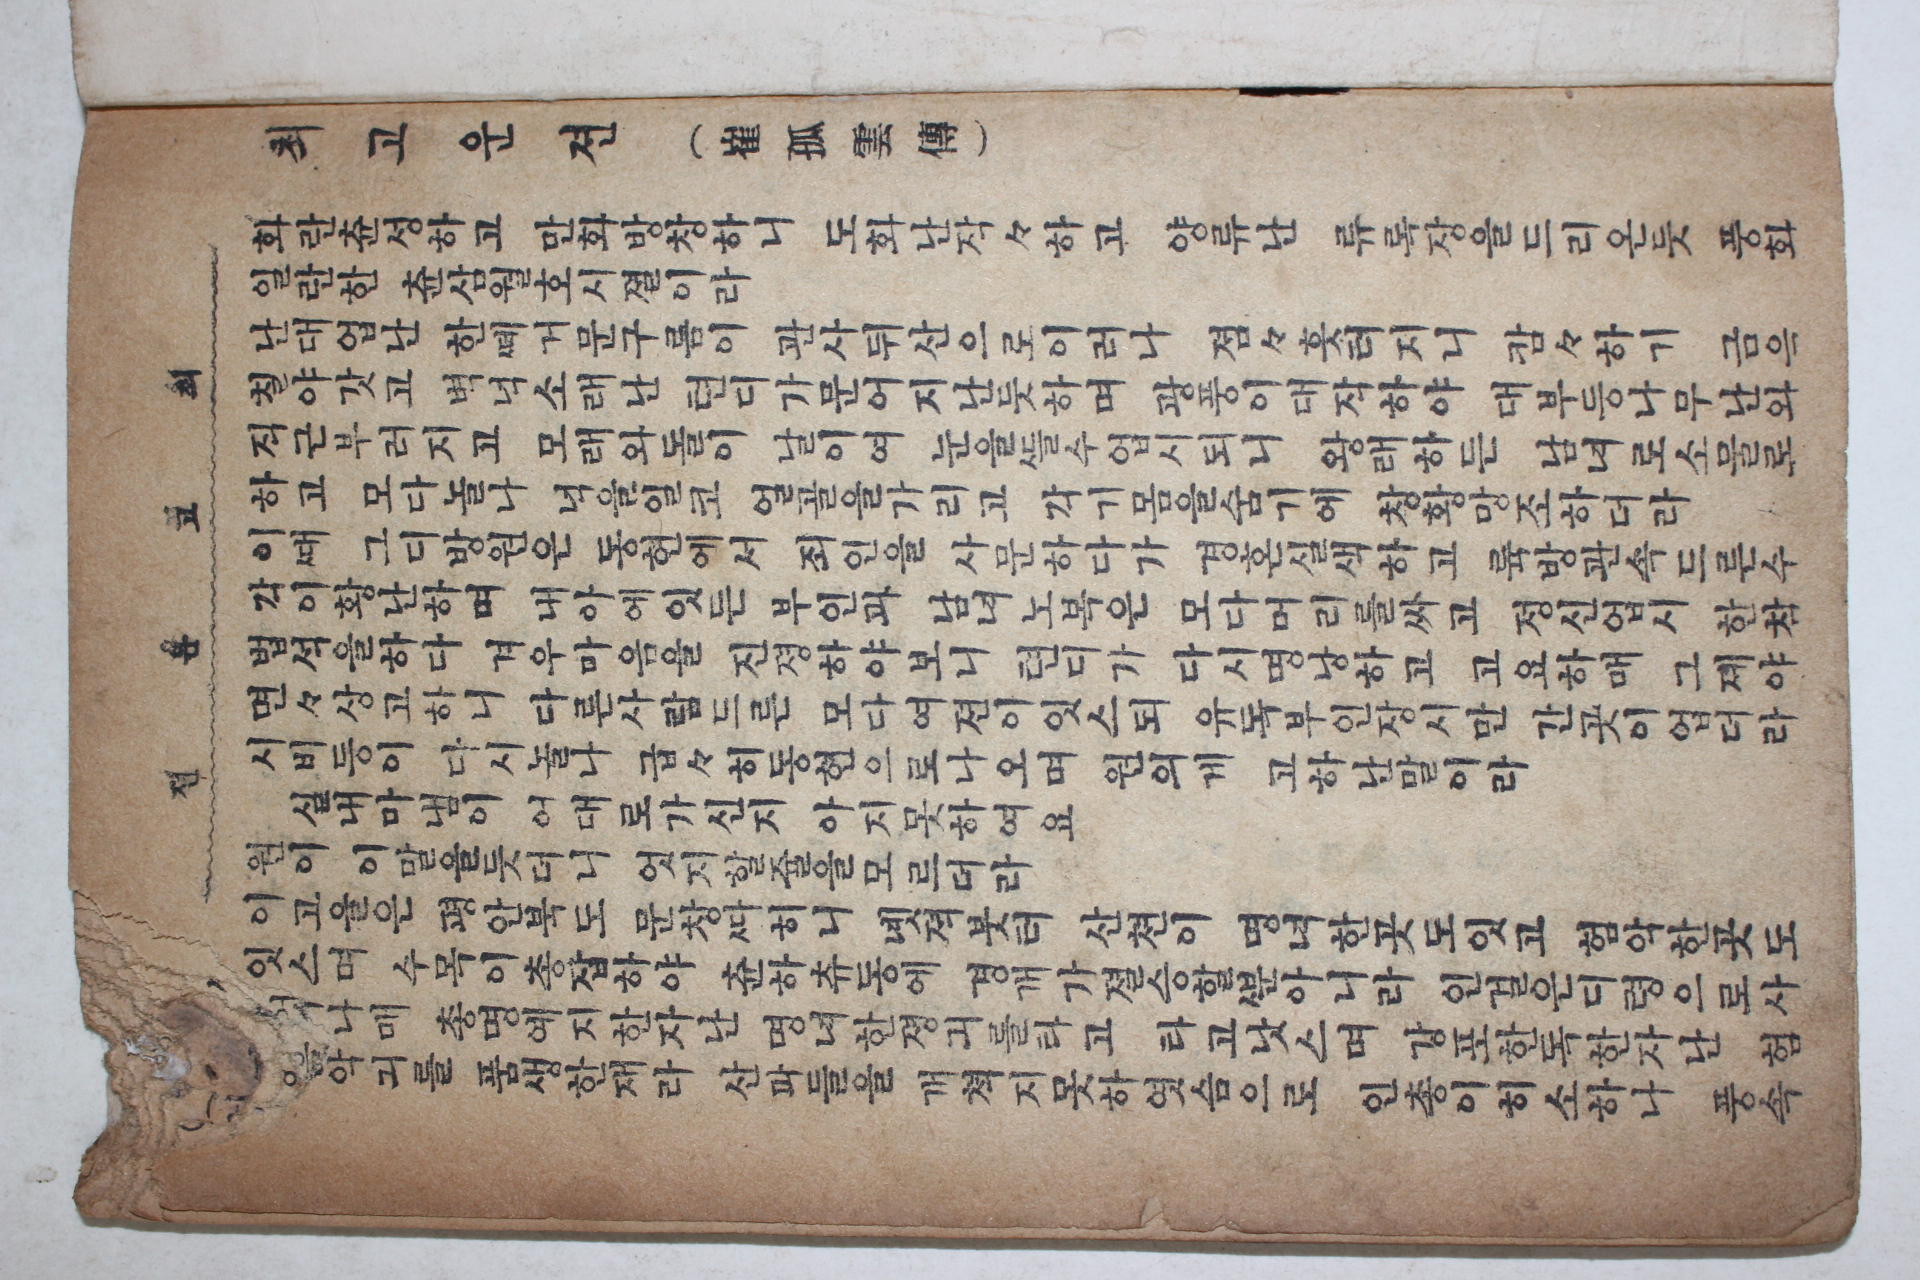 최고운젼 (崔孤雲傳)
화란츈셩하고 만화방창하니 도화난작々하고 양류난 류록장을드리온듯 풍화
일란한 츈삼월호시졀이라
난대업난 한쎄거문구름이 관사뒤산으로이러나 졈々흣터지니 캄々하기 금음
칠야갓고 벽녁소래난 텬디가문어지난듯하며 광풍이대작하야 대부등나무난와
직근부러지고 모래와돌이 날이여 눈을뜰수업시되니 왕래하든 남녀로소물론
하고 모다놀나 넉을일코 얼골을가리고 각기몸을숨기에 창황망조하더라
이쌔 그디방원은 동헌에서 죄인을 사문하다가 경혼실색하고 륙방관속드른수
각이황난하며 내아에잇든 부인과 남녀노복은 모다머리를싸고 정신업시 한참
법석을하다 겨우마음을 진졍하야보니 텬디가 다시명낭하고 고요하매 그제야
면々상고하니 다른사람드른 모다여젼이잇스되 유독부인장시만 간곳이업더라
시비등이 다시놀나 급々히동헌으로나오며 원의게 고하난말이라
실내마님이 어대로가신지 아지못하여요
원이 이말을듯더니 엇지할줄을모르더라
이고을은 평안북도 문창짜히니 녯젹붓터 산쳔이 명녀한곳도잇고 험악한곳도
잇스며 수목이총잡하야 츈하츄동에 경개가졀승할뿐아니라 인걸은디령으로사
나매 총명예지한자난 명녀한졍긔를타고 타고낫스며 강포한독한자난 험
악긔를 품생한재라 산파들을 개척지못하엿슴으로 인총이히소하나 풍속
최고운젼